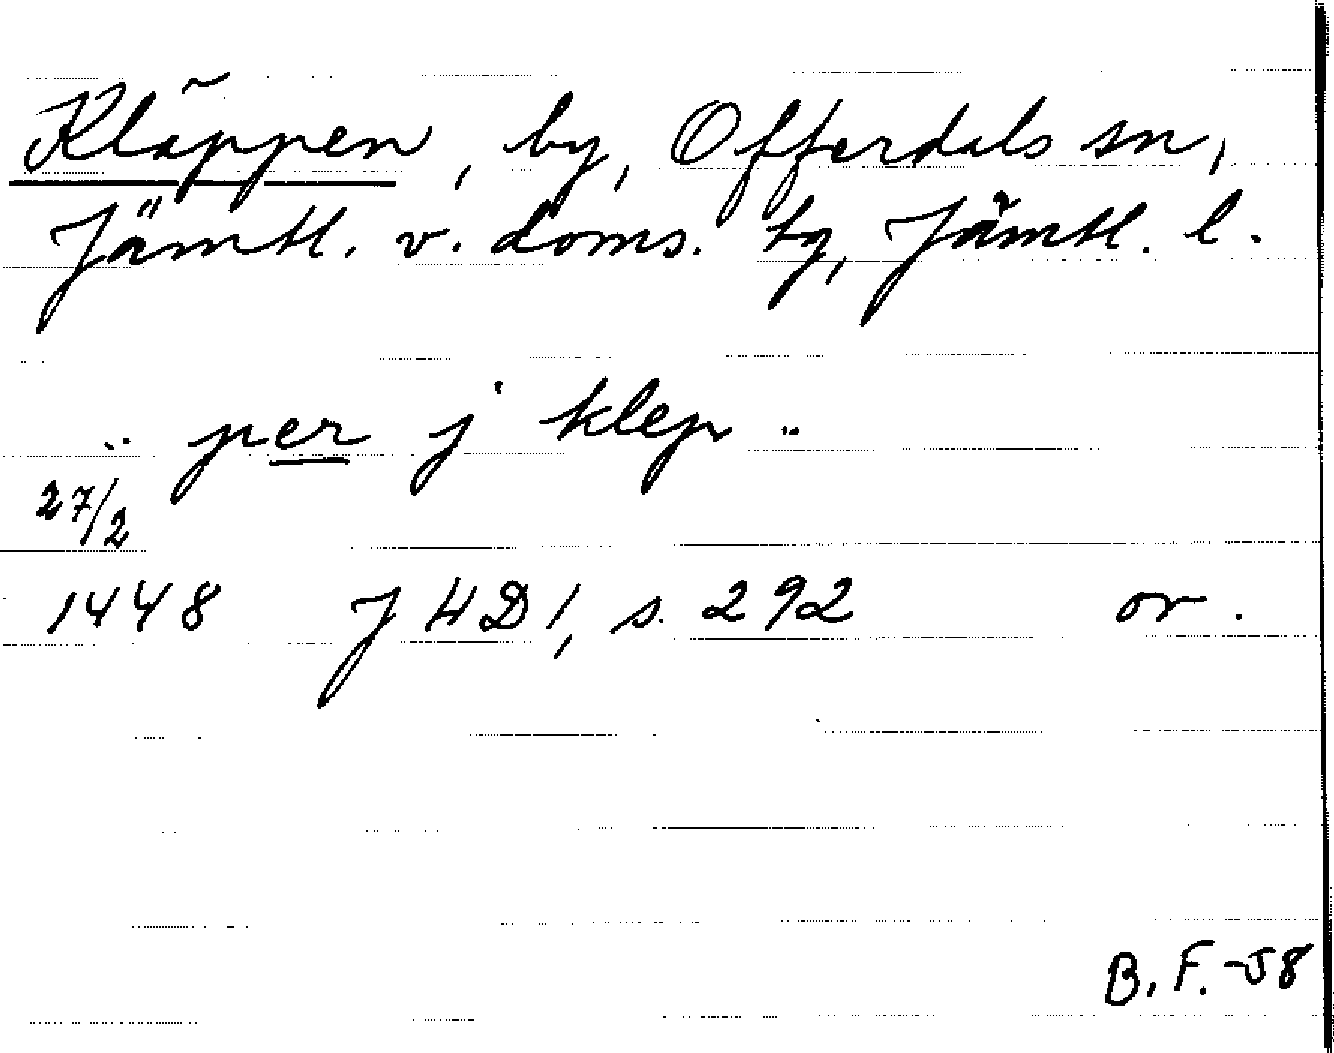 Kläppen, by, Offerdals sn,
Jämtl. v. doms. tg, Jämtl. l.
.. per j klep ..
27/2
1448 J HD 1, s. 292 or.
B. F. -58